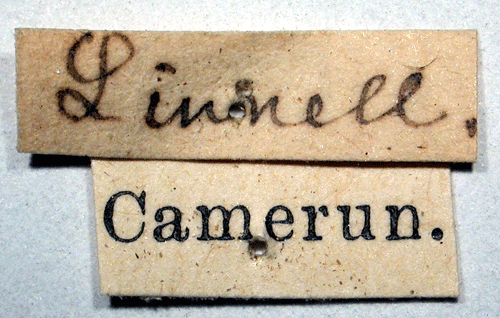 Linnell.
Camerun.